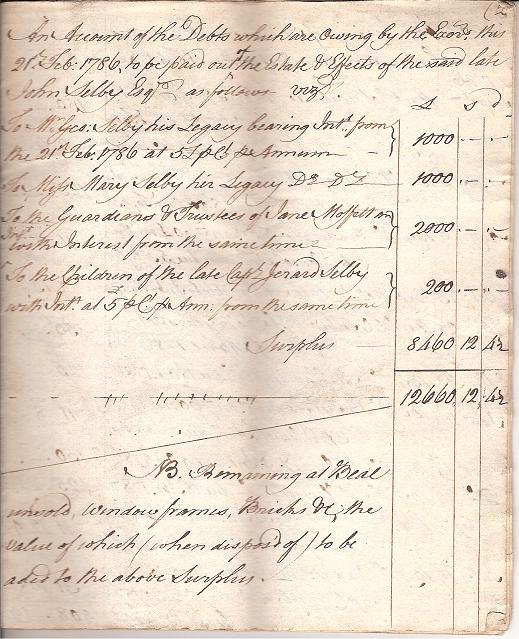 An Account of the Debts which are Owing by the Exors. this
21st. Feb: 1786, to be paid out of the Estate & Effects of the said late
John Selby Esqr. as follows vizt.
£ s d
To Mr. Geo: Selby his Legacy bearing Intt. from
the 21st Feb: 1786 at 5 £ p Ct. p Annum 1000 — —
To Miss Mary Selby her Legacy Do. Do. 1000 — —
To the Guardians & Trustees of Jane Moffett an
Intt. with Interest from the same time 2000 — —
To the Children of the late Capt. Jerard Selby
with Intt. at 5 p Ct. p Ann: from the same time 200 — —
Surplus 8460 12 4½
12660 12 4½
NB. Remaining at Beal
unsold, window frames, Bricks &c, the
value of which (when disposd of) to be
aded to the above Surplus